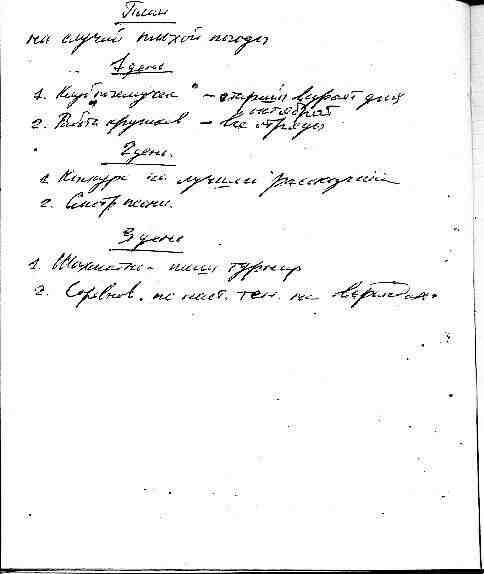 План
на случай плохой погоды
1 день
1. Клуб "почемучек" – старший возраст для
октябрят
2. Работа кружков – все отряды
2 день.
1. Конкурс на лучший рассказчик
2. Смотр песни.
3 день
1. Шахматно - турнир
2. Соревнов. по наст. тен. на верандах.